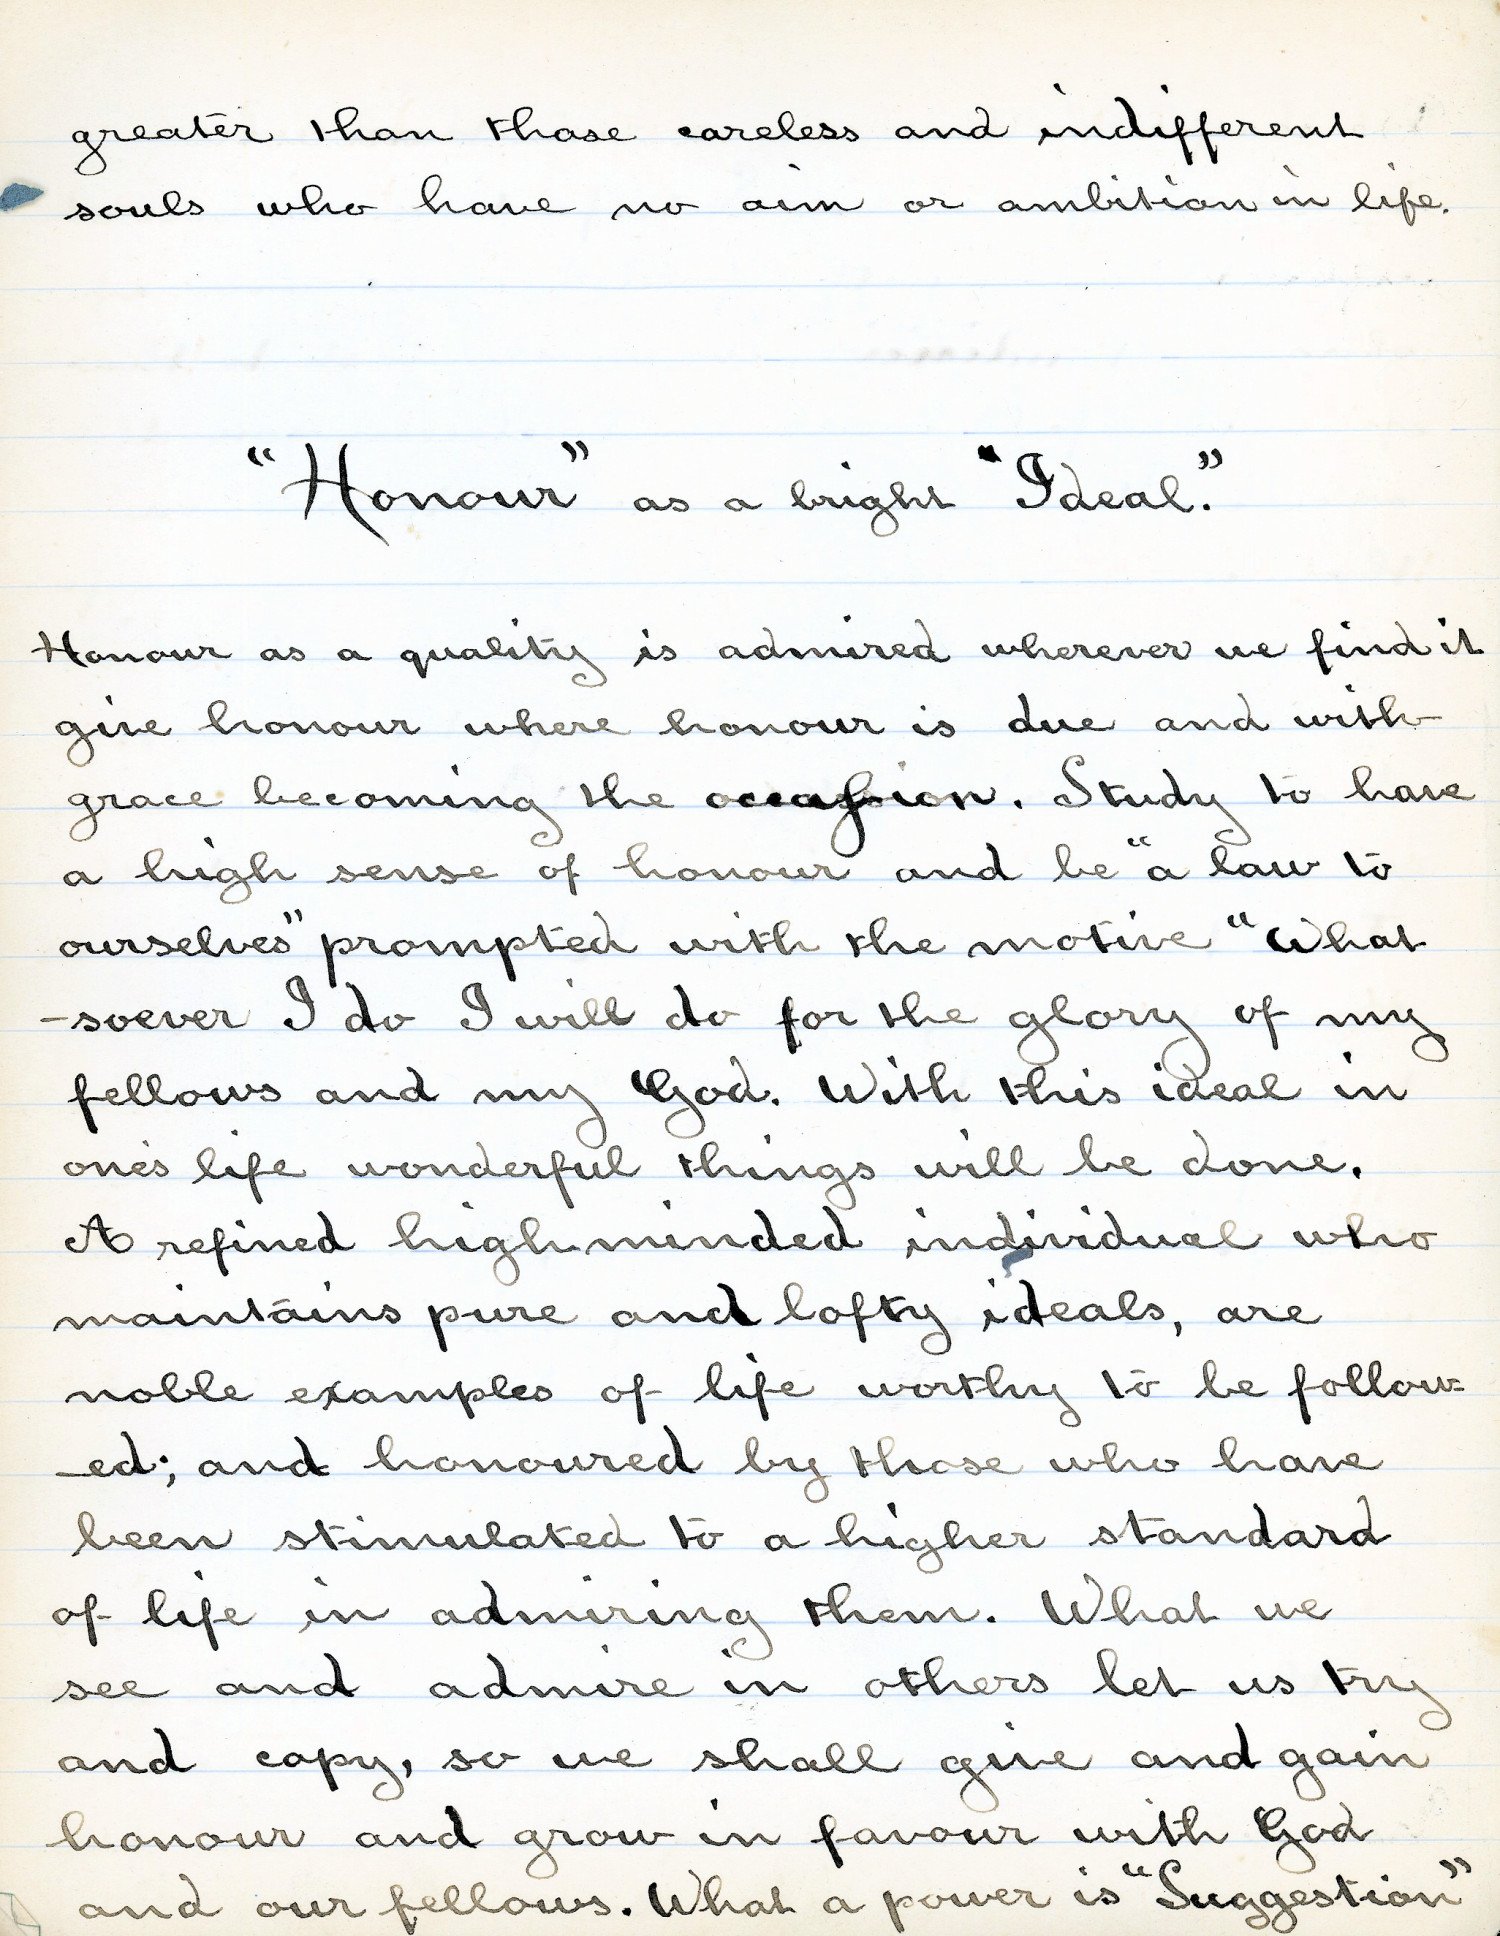 greater than those careless and indifferent
souls who have no aim or ambition in life.
"Honour" as a bright "Ideal."
Honour as a quality is admired wherever we find it
give honour where honour is due and with
grace becoming the occassion. Study to have
a high sense of honour and be "a law to
ourselves" prompted with the motive "What
-soever I do I will do for the glory of my
fellows and my God. With this ideal in
one's life wonderful things will be done.
A refined high-minded individual who
maintains pure and lofty ideals, are
noble examples of life worthy to be follow-
-ed; and honoured by those who have
been stimulated to a higher standard
of life in admiring them. What we
see and admire in others let us try
and copy, so we shall give and gain
honour and grow in favour with God
and our fellows. What a power is "Suggestion"